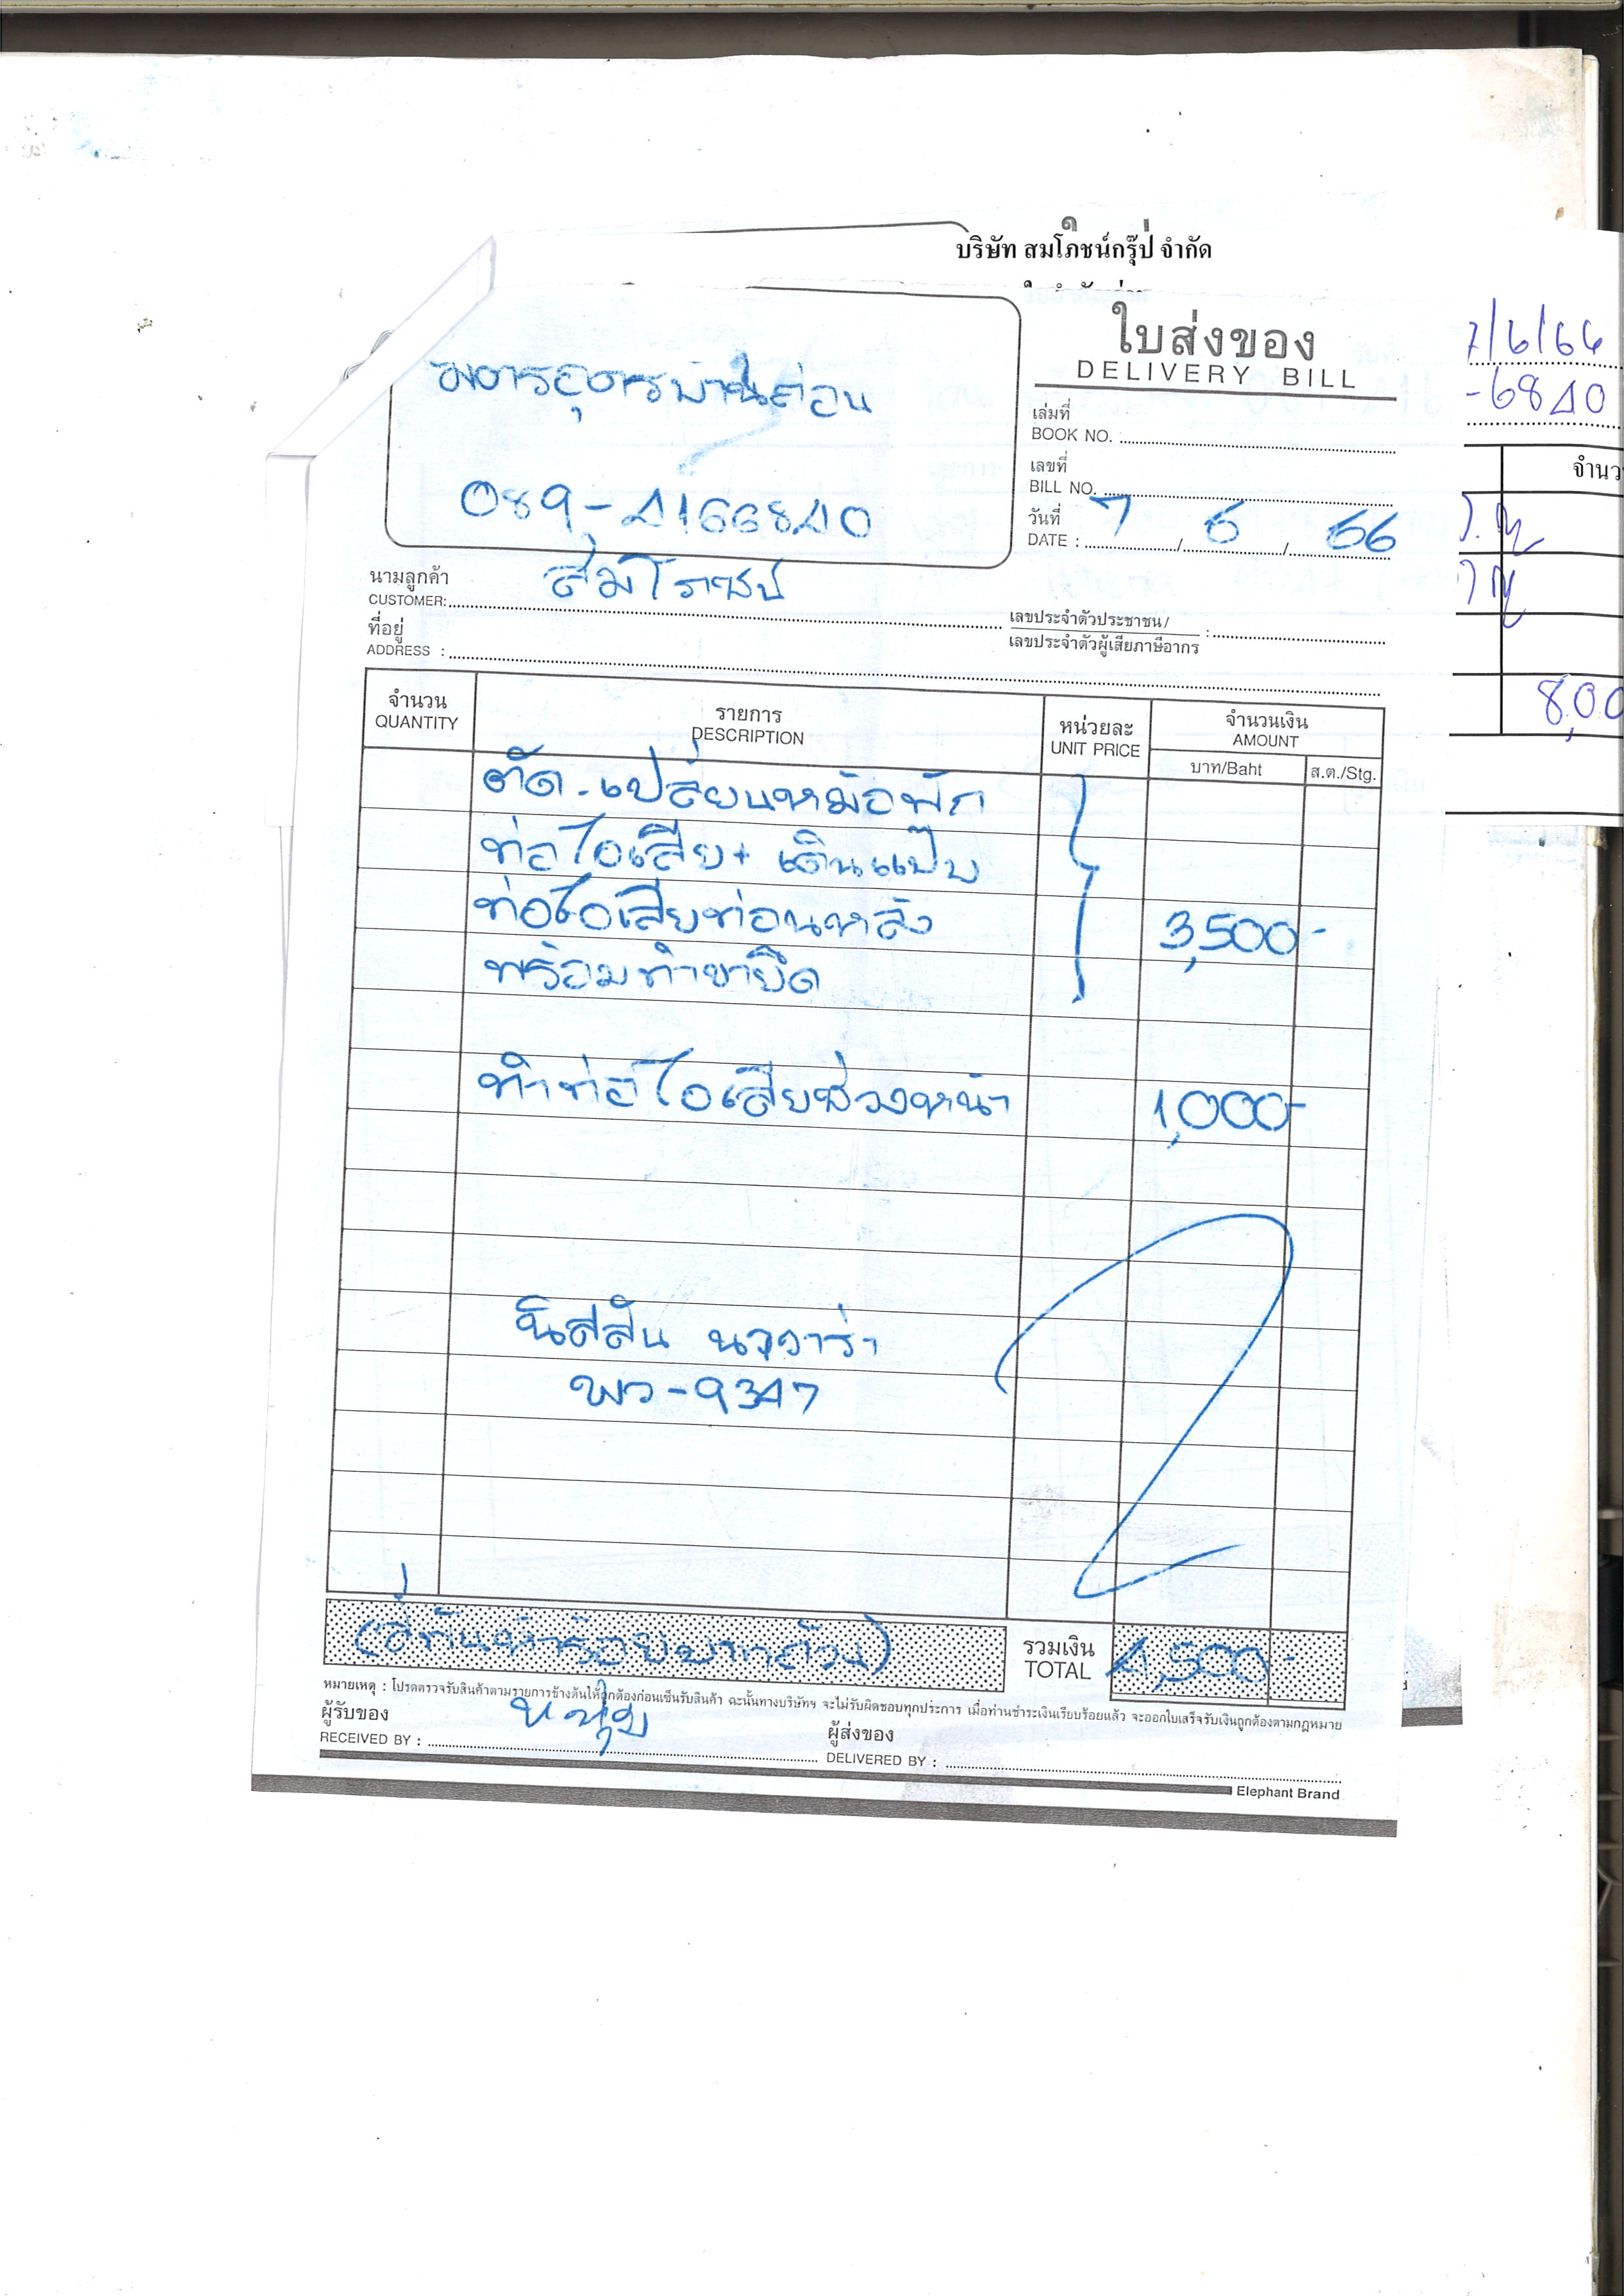 บริษัท สมโภชน์กรุ๊ป จำกัด
ใบส่งของ
DELIVERY BILL
7/6/66
-6840
089-4166840
เล่มที่
BOOK NO.
เลขที่
BILL NO.
วันที่
DATE : 7 / 6 / 66
นามลูกค้า
CUSTOMER: สมโภชน์
เลขประจำตัวประชาชน/
เลขประจำตัวผู้เสียภาษีอากร :
ที่อยู่
ADDRESS :
จำนวน
QUANTITY
รายการ
DESCRIPTION
หน่วยละ
UNIT PRICE
จำนวนเงิน
AMOUNT
บาท/Baht
ส.ต./Stg.
8,00
ตัด-เปลี่ยนหม้อพัก
ท่อไอเสีย+ เดินแป๊บ
ท่อไอเสียท่อนหลัง 3,500-
พร้อมทำขายึด
ทำท่อไอเสียช่วงหน้า 1,000-
นิสสัน นาวาร่า
พว-9347
(สี่พันห้าร้อยบาทถ้วน)
รวมเงิน
TOTAL 4,500-
หมายเหตุ : โปรดตรวจรับสินค้าตามรายการข้างต้นให้ถูกต้องก่อนเซ็นรับสินค้า ฉะนั้นทางบริษัทฯ จะไม่รับผิดชอบทุกประการ เมื่อท่านชำระเงินเรียบร้อยแล้ว จะออกใบเสร็จรับเงินถูกต้องตามกฎหมาย
ผู้รับของ
RECEIVED BY :
ผู้ส่งของ
DELIVERED BY :
Elephant Brand